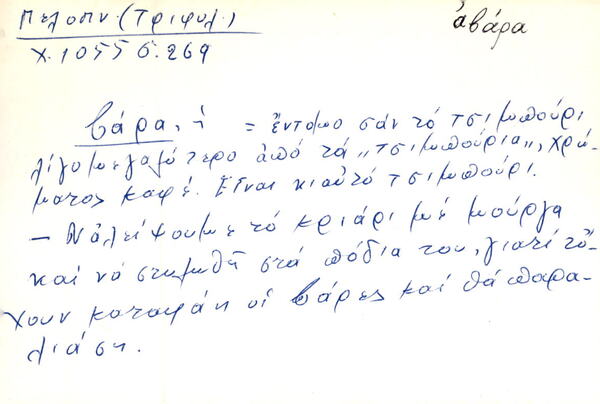 Πελοπν. (Τριφυλ.)
ἀβάρα
Χ. 1055 σ. 269
βάρα, ἡ = ἔντομο σάν τό τσιμπούρι
λίγο μεγαλύτερο ἀπό τά „τσιμπούρια„, χρώ-
ματος καφέ. Εἶναι κι αὐτό τσιμπούρι.
— Ν' ἀλείψουμε τό κριάρι μέ μούργα
καί νά στηθῆ στά πόδια του, γιατί τὄ-
χουν καταφάη οἱ βάρες καί θά παρα-
λιάση.